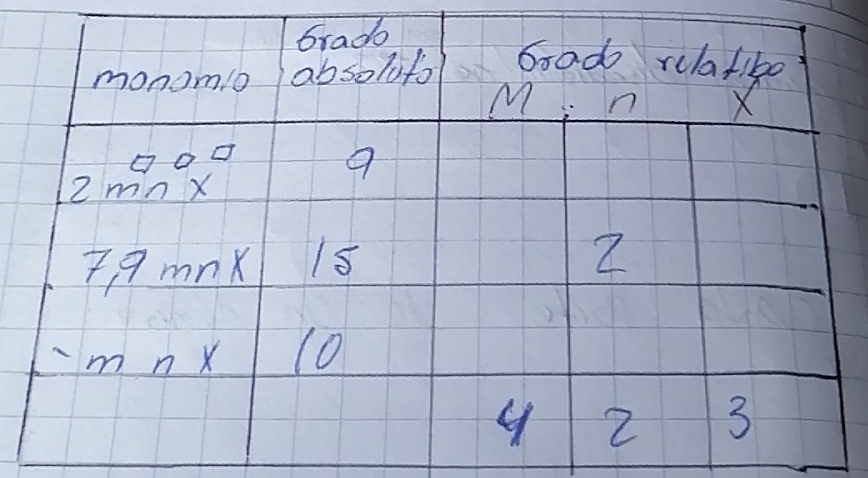 monomio	Grado absoluto	Grado relatibo
M . n X
2 m n x	9
7,9 mnx	15	2
- m n x	10
4	2	3